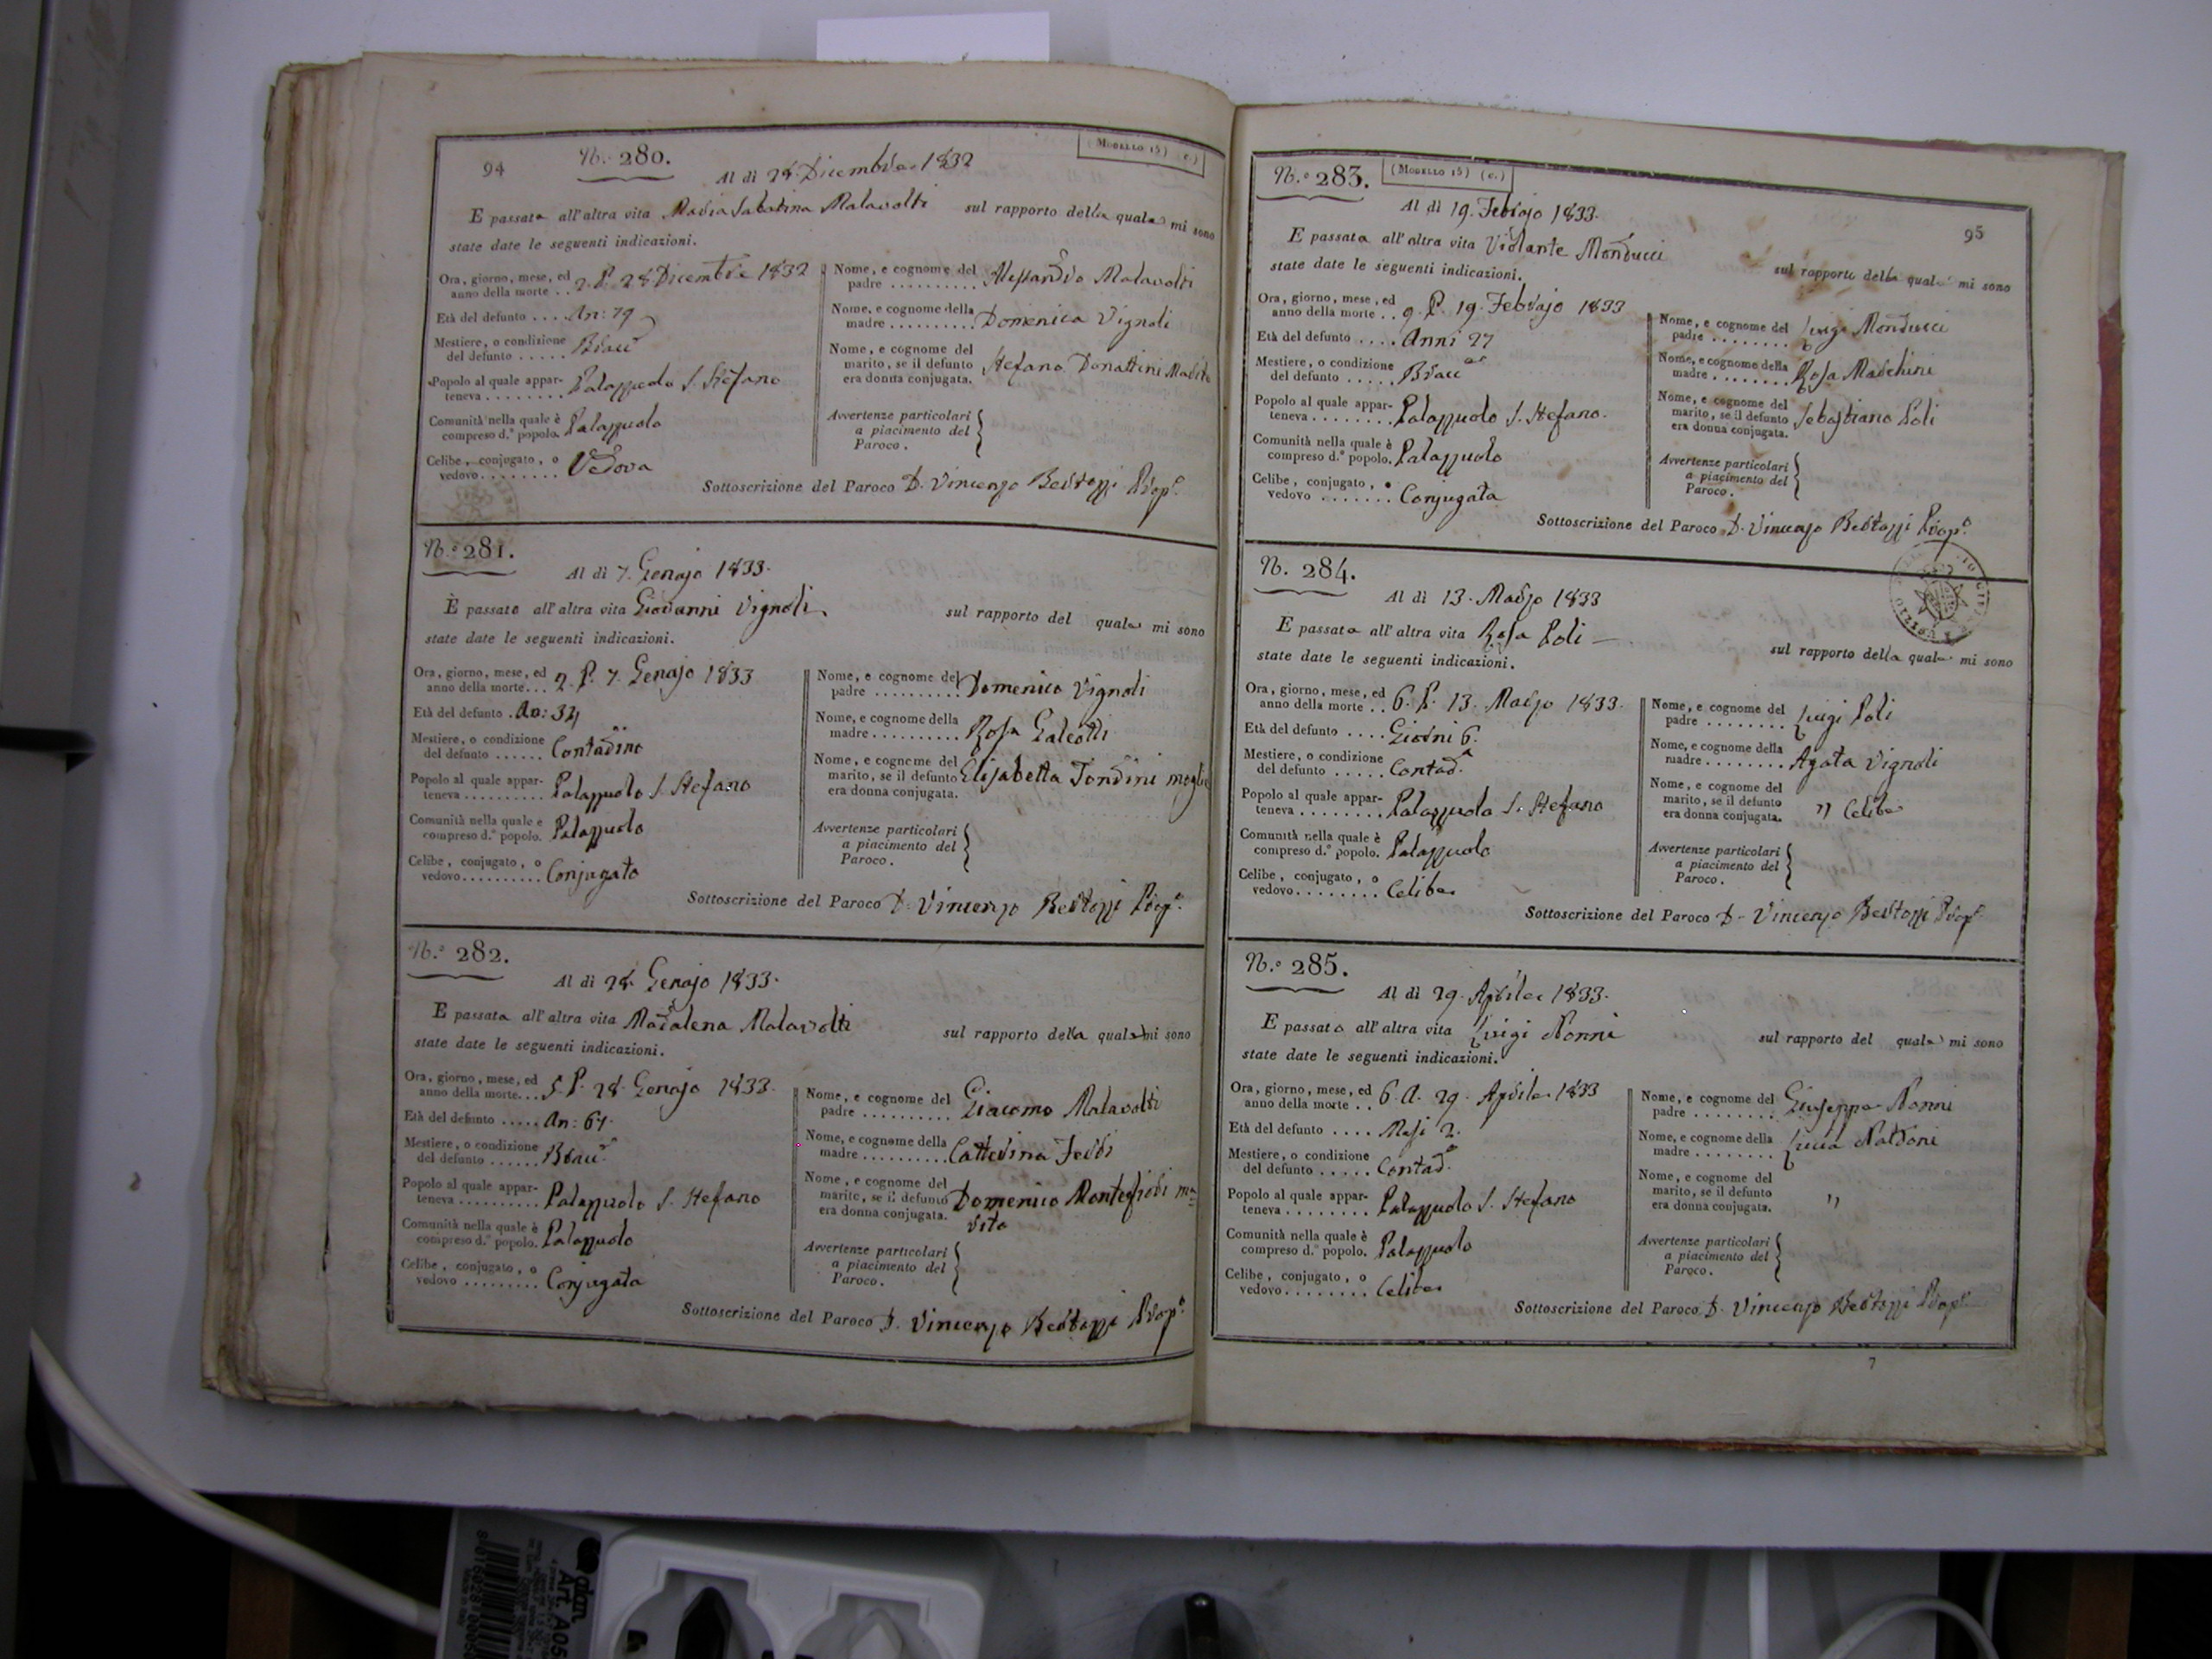 94
N.º 280.
(Modello 15) (c.)
Al dì 28. Dicembre 1832
E passata all'altra vita Maria Sabatina Malavolti sul rapporto della quale mi sono
state date le seguenti indicazioni.
Ora, giorno, mese, ed
anno della morte .. 2. P. 28 Dicembre 1832
Età del defunto .... An: 79
Mestiere, o condizione
del defunto ...... Bracc
Popolo al quale appar-
teneva ........ Palazzuolo S. Stefano
Comunità nella quale è
compreso d.º popolo. Palazzuolo
Celibe, conjugato, o
vedovo ........ Vedova
Nome, e cognome del
padre .......... Alessandro Malavolti
Nome, e cognome della
madre .......... Domenica Vignoli
Nome, e cognome del
marito, se il defunto
era donna conjugata. Stefano Donattini Marito
Avvertenze particolari
a piacimento del
Paroco.
Sottoscrizione del Paroco D. Vincenzo Bertozzi Prop.º
N.º 281.
Al dì 7. Genajo 1833.
È passato all'altra vita Giovanni Vignoli. sul rapporto del quale mi sono
state date le seguenti indicazioni.
Ora, giorno, mese, ed
anno della morte... 2. P. 7. Genajo 1833
Età del defunto . An: 34
Mestiere, o condizione
del defunto ...... Contadino
Popolo al quale appar-
teneva .......... Palazzuolo S. Stefano
Comunità nella quale e
compreso d.º popolo. Palazzuolo
Celibe, conjugato, o
vedovo.......... Conjugato
Nome, e cognome del
padre .......... Domenico Vignoli
Nome, e cognome della
madre .......... Rosa Galeotti
Nome, e cognome del
marito, se il defunto
era donna conjugata. Elisabetta Tondini moglie
Avvertenze particolari
a piacimento del
Paroco.
Sottoscrizione del Paroco D. Vincenzo Bertozzi Prop.º
N.º 282.
Al dì 28. Genajo 1833.
E passata all'altra vita Madalena Malavolti sul rapporto della quale mi sono
state date le seguenti indicazioni.
Ora, giorno, mese, ed
anno della morte... 5. P. 28. Genajo 1833.
Età del defunto ..... An: 64.
Mestiere, o condizione
del defunto ...... Bracc
Popolo al quale appar-
teneva .......... Palazzuolo S. Stefano
Comunità nella quale è
compreso d.º popolo. Palazzuolo
Celibe, conjugato, o
vedovo ......... Conjugata
Nome, e cognome del
padre .......... Giacomo Malavolti
Nome, e cognome della
madre .......... Catterina Ferri
Nome, e cognome del
marito, se il defunto
era donna conjugata. Domenico ma=
rito
Avvertenze particolari
a piacimento del
Paroco.
Sottoscrizione del Paroco D. Vincenzo Bertozzi Prop.º
N.º 283.
(Modello 15) (c.)
95
Al dì 19. Febrajo 1833.
E passata all'altra vita Violante Monducci sul rapporto della quale mi sono
state date le seguenti indicazioni.
Ora, giorno, mese, ed
anno della morte .. 9. P. 19. Febrajo 1833
Età del defunto .... Anni 27
Mestiere, o condizione
del defunto ..... Bracc
Popolo al quale appar-
teneva ........ Palazzuolo S. Stefano.
Comunità nella quale è
compreso d.º popolo. Palazzuolo
Celibe, conjugato, o
vedovo ....... Conjugata
Nome, e cognome del
padre ........ Luigi Monducci
Nome, e cognome della
madre ........ Rosa Marchini
Nome, e cognome del
marito, se il defunto
era donna conjugata. Sebastiano Poli
Avvertenze particolari
a piacimento del
Paroco.
Sottoscrizione del Paroco D. Vincenzo Bertozzi Prop.º
N. 284.
Al dì 13. Marzo 1833
E passata all'altra vita Rosa Poli sul rapporto della quale mi sono
state date le seguenti indicazioni.
Ora, giorno, mese, ed
anno della morte .. 6. P. 13. Marzo 1833.
Età del defunto .... Giorni 6.
Mestiere, o condizione
del defunto ..... Contad.
Popolo al quale appar-
teneva ........ Palazzuolo S. Stefano
Comunità nella quale è
compreso d.º popolo. Palazzuolo
Celibe, conjugato, o
vedovo........ Celibe
Nome, e cognome del
padre ........ Luigi Poli
Nome, e cognome della
madre ........ Agata Vignoli
Nome, e cognome del
marito, se il defunto
era donna conjugata. " Celibe
Avvertenze particolari
a piacimento del
Paroco.
Sottoscrizione del Paroco D. Vincenzo Bertozzi Prop.º
N.º 285.
Al dì 29. Aprile 1833.
E passato all'altra vita Luigi Nonni sul rapporto del quale mi sono
state date le seguenti indicazioni.
Ora, giorno, mese, ed
anno della morte .. 6. A. 29. Aprile 1833
Età del defunto .... Mesi 2.
Mestiere, o condizione
del defunto ..... Contad.
Popolo al quale appar-
teneva ........ Palazzuolo S. Stefano
Comunità nella quale è
compreso d.º popolo. Palazzuolo
Celibe, conjugato, o
vedovo........ Celibe
Nome, e cognome del
padre ........ Giuseppe Nonni
Nome, e cognome della
madre ........ Lucia Naldoni
Nome, e cognome del
marito, se il defunto
era donna conjugata. "
Avvertenze particolari
a piacimento del
Paroco.
Sottoscrizione del Paroco D. Vincenzo Bertozzi Prop.º
7
Art. A05